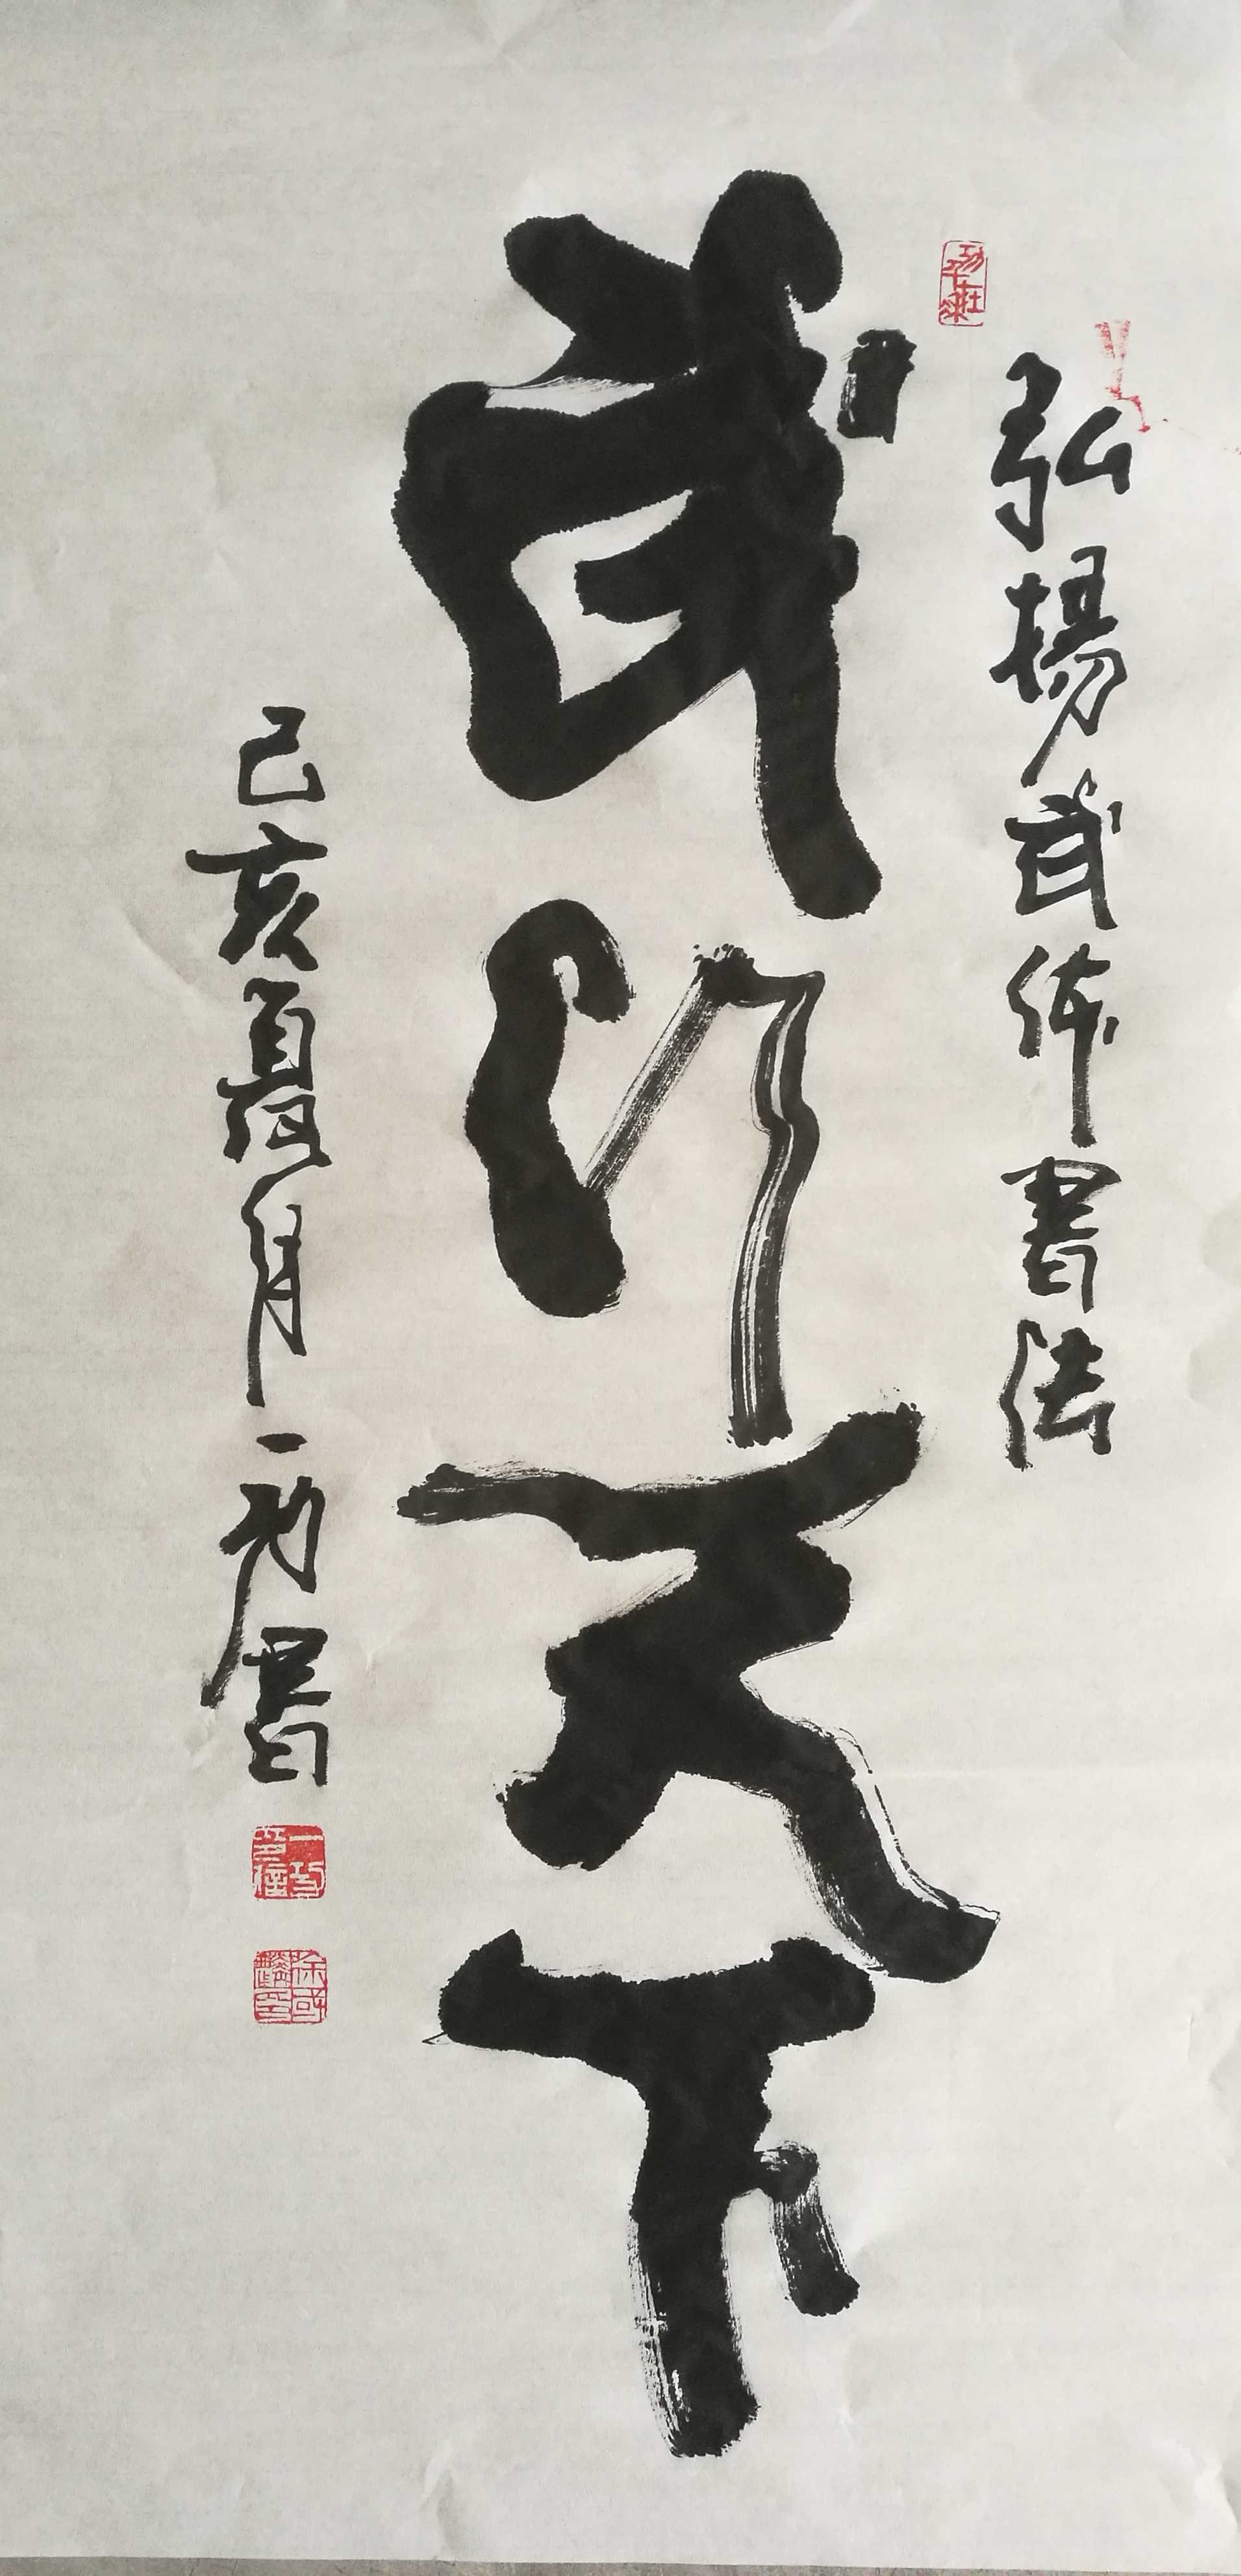 弘揚武体書法
武行天下
己亥夏月一功書